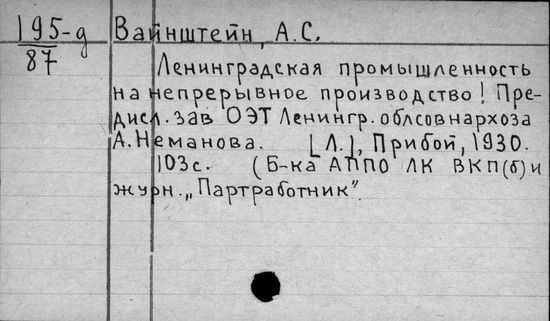 195-д Вайнштейн, А.С.
87
Ленинградская промышленность
на непрерывное производство! Пре-
дисл. зав ОЭТ Ленингр. облсовнархоза
А. Неманова. [Л.], Прибой, 1930.
103с. (Б-ка АППО ЛК ВКП(б) и
журн. „Партработник"